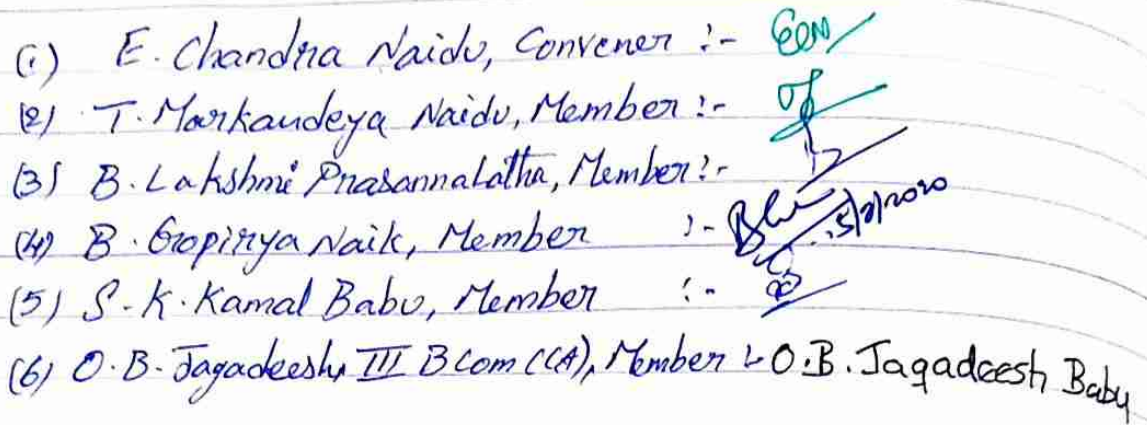 (1) E. Chandra Naidu, Convener :-
(2) T. Markandeya Naidu, Member :-
(3) B. Lakshmi Prasannalatha, Member :-
(4) B. Gopiriya Naik, Member :-
(5) S.K. Kamal Babu, Member :-
(6) O.B. Jagadeesh, III B Com (CA), Member :- O.B. Jagadeesh Baby